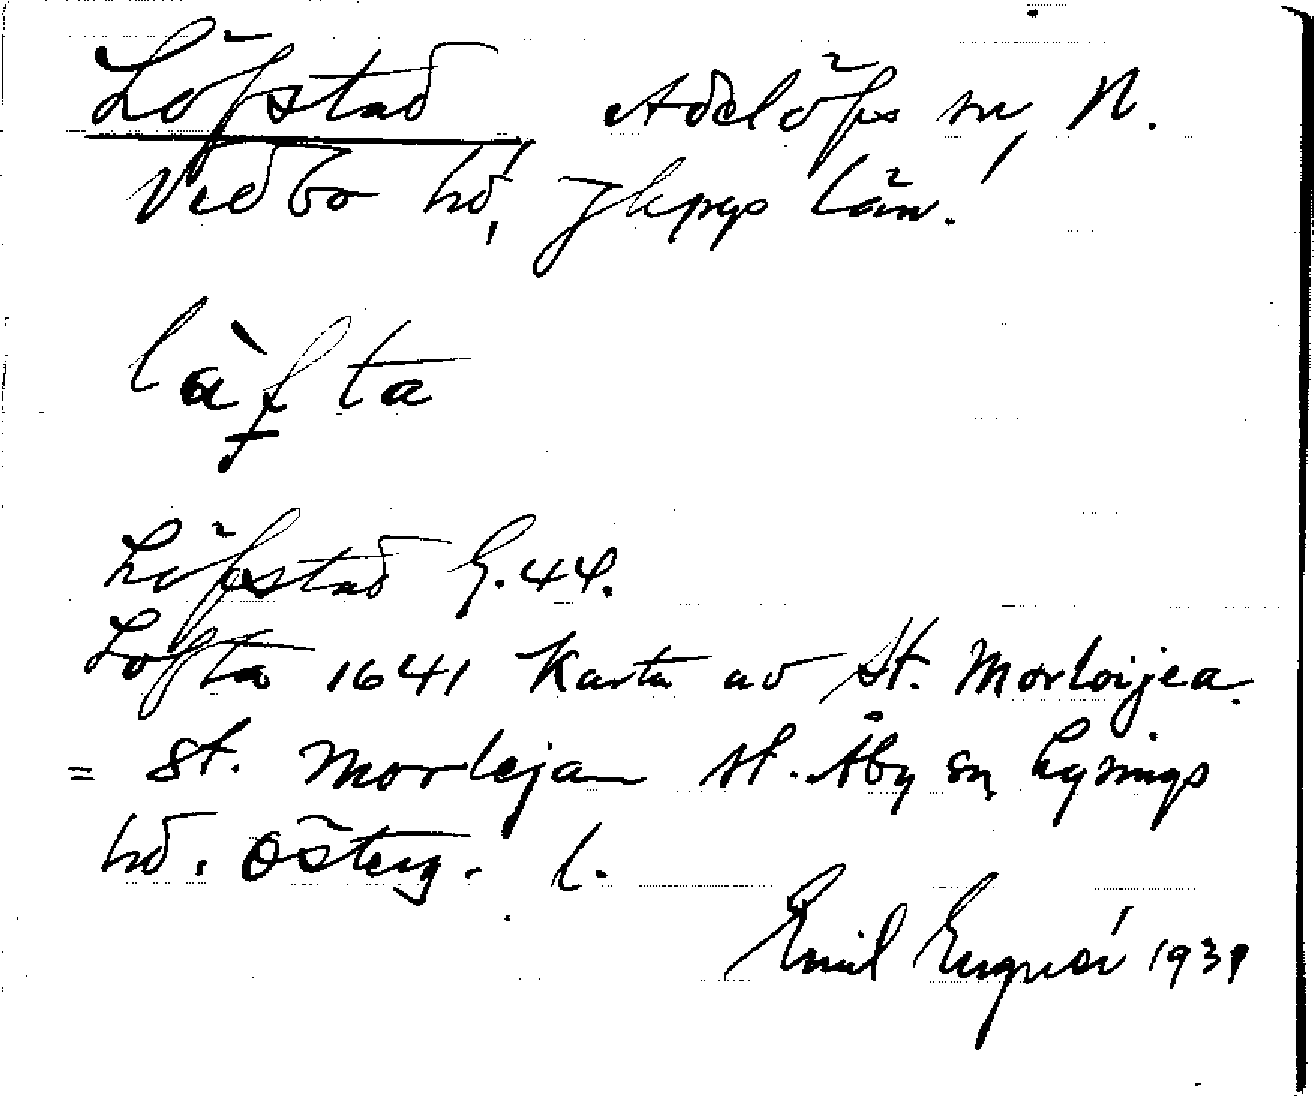 Löfstad Adelöfs sn, N.
Vedbo hd, Jkpgs län.
làfta
Löfstad G.44.
Lofta 1641 Karta av St. Morloijea.
= St. Morlejan st. Åby sn Lysings
hd. Österg. l.
Emil 1939